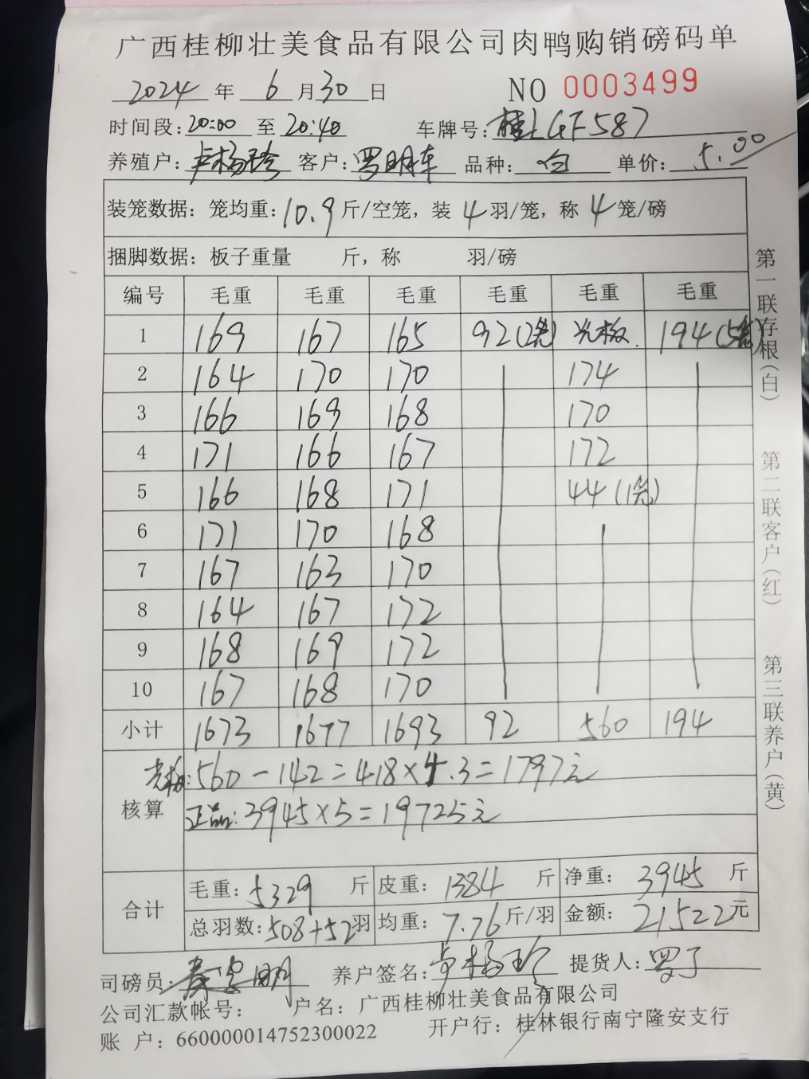 广西桂柳壮美食品有限公司肉鸭购销磅码单
2024 年 6 月 30 日 NO 0003499
时间段:20:00 至 20:40 车牌号:桂LGF587
养殖户:卢杨珍 客户:罗明车 品种:白 单价:5.00
装笼数据:笼均重:10.9斤/空笼,装4羽/笼,称4笼/磅
捆脚数据:板子重量 斤,称 羽/磅
编号 毛重 毛重 毛重 毛重 毛重 毛重
1 169 167 165 92(2笼) 光板. 194(5笼)
2 164 170 170 174
3 166 169 168 170
4 171 166 167 172
5 166 168 171 44(1笼)
6 171 170 168
7 167 163 170
8 164 167 172
9 168 169 172
10 167 168 170
小计 1673 1677 1693 92 560 194
核算
光板:560-142=418×4.3=1797元
正品:3945×5=19725元
合计
毛重:5329 斤 皮重:1384 斤 净重:3945 斤
总羽数:508+52羽 均重:7.76斤/羽 金额:21522元
司磅员: 养户签名:卢杨珍 提货人:罗
公司汇款帐号: 户名:广西桂柳壮美食品有限公司
账 户:660000014752300022 开户行:桂林银行南宁隆安支行
第一联存根(白) 第二联客户(红) 第三联养户(黄)